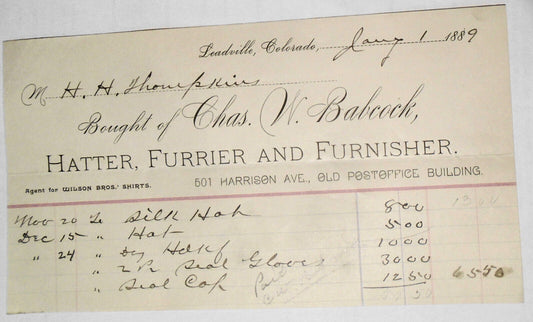 Leadville, Colorado, Jany 1 1889
M H. H. Thompkins
Bought of Chas. W. Babcock,
HATTER, FURRIER AND FURNISHER.
Agent for WILSON BROS.' SHIRTS. 501 HARRISON AVE., OLD POSTOFFICE BUILDING.
Nov 20 To Silk Hat 8 00 13 00
Dec 15 " Hat 5 00
" 24 " Doz Hdkf 10 00
" 2 Pr Seal Gloves 30 00
" Seal Cap 12 50 65 50